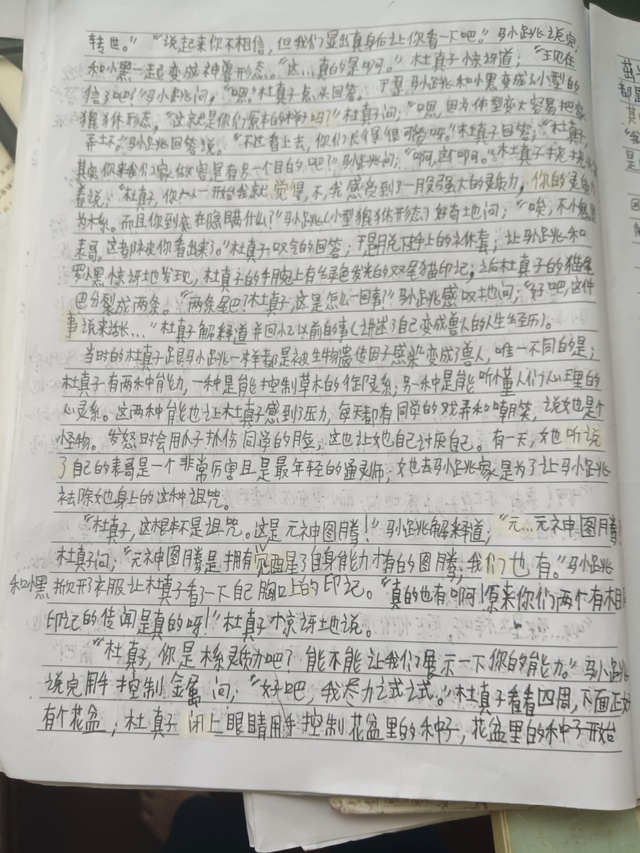 转世。”“说起来你不相信，但我们显出真身后让你看一下吧。”马小跳说完，
和小黑一起变成神兽形态。“这…真的是吗。”杜真子惊讶道；“王见在
信了吧？”马小跳问，“嗯。”杜真子点头回答。于是马小跳和小黑变成了小型的
猫猫体形态，“这就是你们原本的样子吗？”杜真子问；“嗯，因为体型变大容易把家
弄坏。”马小跳回答说。“不过看上去，你们长得很可爱呀。”杜真子回答；“杜真子，
其实你来我们家做客是有另一个目的吧？”马小跳问；“啊，这个啊。”杜真子
着说；“杜真子，你从一开始我就觉得，不，我感受到了一股强大的灵质力，你的灵
为木系。而且你到底在隐瞒什么？”马小跳（小型猫猫体形态）好奇地问；“唉，不愧是
表哥，这都被你看出来了。”杜真子叹气的回答；于是脱下手上的衣体套；让马小跳和
罗小黑惊讶地发现，杜真子的手腕上有绿色发光的双尾猫印记，之后杜真子的猫尾
巴分裂成两条。“两条尾巴？杜真子，这是怎么一回事？”马小跳感叹地问；“好吧，这件
事说来话长…”杜真子解释道并回忆以前的事（讲述了自己变成兽人的人生经历）。
当时的杜真子跟马小跳一样都是被生物遗传因子感染变成了兽人，唯一不同的是；
杜真子有两种能力，一种是能控制草木的体灵系；另一种是能听懂人们心里的
心灵系。这两种能也让杜真子感到了压力，每天都有同学的戏弄和嘲笑，说她是个
怪物。发怒时会用爪子抓伤同学的脸，这也让她自己讨厌自己。有一天，她听说
了自己的表哥是一个非常厉害且是最年轻的通灵师；她去马小跳家是为了让马小跳
祛除她身上的这种诅咒。
“杜真子，这根本不是诅咒。这是元神图腾！”马小跳解释道；“元…元神图腾
杜真子问；“元神图腾是拥有觉醒了自身能力才有的图腾，我们也有。”马小跳
和小黑掀开了衣服让杜真子看了一下自己胸口上的印记。“真的也有啊！原来你们两个有相
印记的传闻是真的呀！”杜真子惊讶地说。
“杜真子，你是木系灵质力吧？能不能让我们展示一下你的能力。”马小
说完用手控制金属问；“好吧，我尽力试试。”杜真子看看四周，下面正
有个花盆；杜真子闭上眼睛用手控制花盆里的种子，花盆里的种子开始